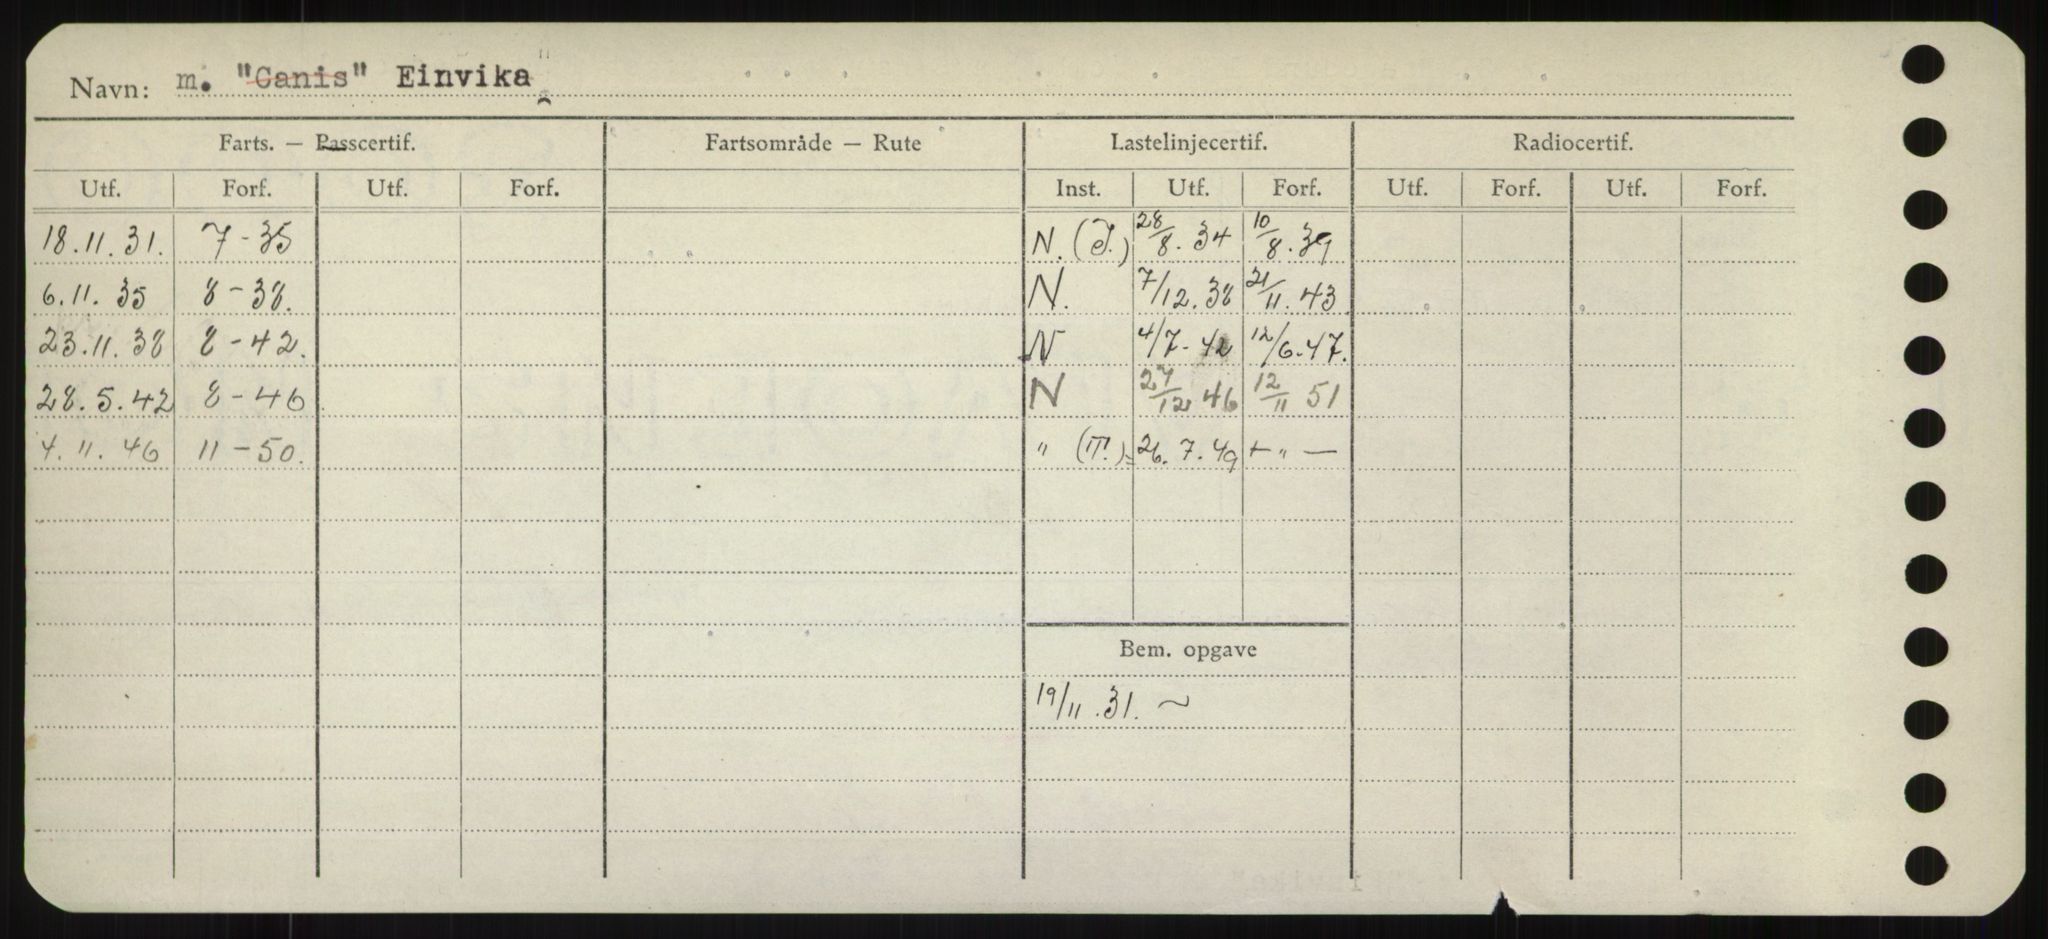 Navn: m. "Canis" Einvika"
Farts. — Passcertif. Fartsområde — Rute Lastelinjecertif. Radiocertif.
Utf. Forf. Utf. Forf. Inst. Utf. Forf. Utf. Forf. Utf. Forf.
18.11.31. 7-35 N. (I.) 28/8. 34 10/8. 39
6.11.35 8-38. N. 7/12. 38 21/11. 43
23.11.38 8-42. N 4/7-42 12/6-47.
28.5.42 8-46 N 27/12 46 12/11 51
4.11.46 11-50. " (T.) 26.7.49 " —
Bem. opgave
19/11.31. ~